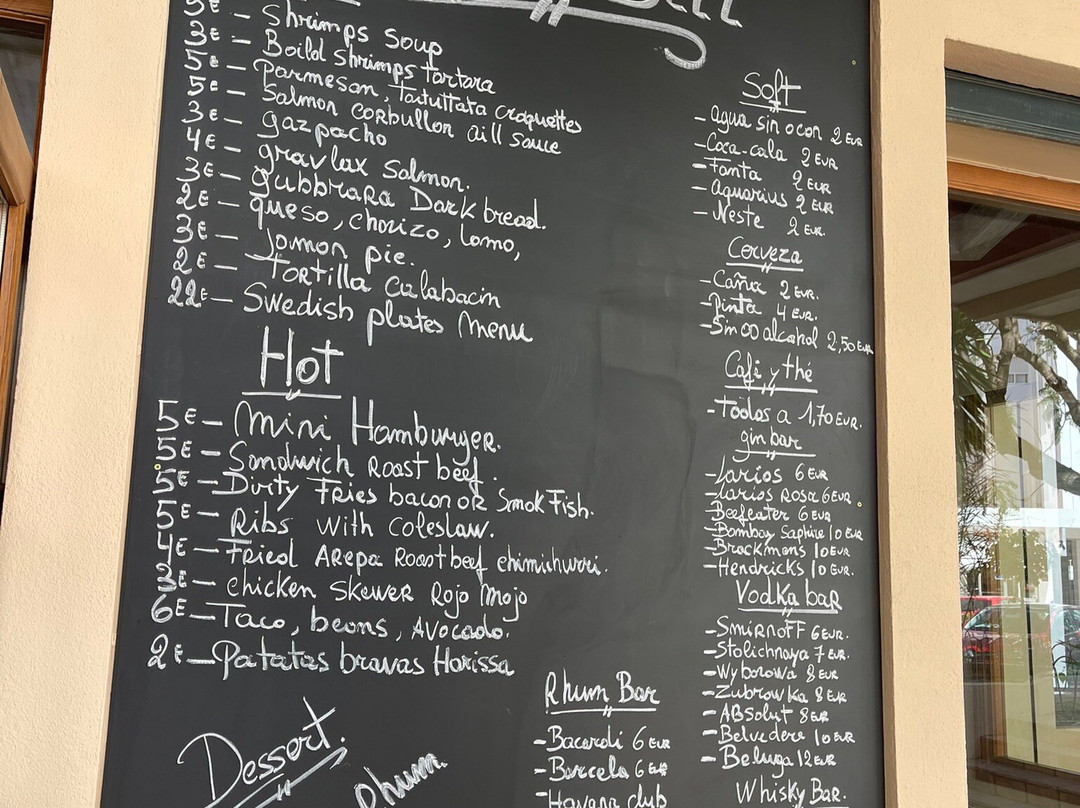 Shrimps Soup
3€ – Boild shrimps tartara
5€ – Parmesan, tartuttata croquettes
5€ – Salmon corbullon aill sauce
3€ – gazpacho
4€ – gravlax salmon.
3€ – gubbrara Dark bread.
2€ – queso, chorizo, lomo,
3€ – Jamon pie.
2€ – Tortilla calabacin
22€ – Swedish plates menu
Hot
5€ – Mini Hamburger.
5€ – Sandwich Roast beef.
5€ – Dirty Fries bacon or Smok Fish.
5€ – Ribs with coleslaw.
4€ – Fried Arepa Roastbeef chimichurri.
3€ – chicken skewer Rojo Mojo
6€ – Taco, beans, Avocado.
2€ – Patatas bravas Harissa
Dessert.
Rhum
Soft
- agua sin o con 2 EUR
- Coca-cala 2 EUR
- Fanta 2 EUR
- Aquarius 2 EUR
- Neste 2 EUR.
Cerveza
- Caña 2 EUR.
- Pinta 4 EUR.
- Sin alcohol 2,50 EUR
Cafi y thé
- Todos a 1,70 EUR.
gin bar
- Larios 6 EUR
- Larios Rosa 6 EUR
- Beefeater 6 EUR
- Bombay Saphire 10 EUR
- Brockmans 10 EUR
- Hendricks 10 EUR.
Vodka bar
- Smirnoff 6 EUR.
- Stolichnaya 7 EUR.
- Wyborowa 8 EUR
- Zubrowka 8 EUR
- Absolut 8 EUR
- Belvedere 10 EUR
- Beluga 12 EUR
Whisky Bar.
Rhum Bar
- Bacardi 6 EUR
- Barcelo 6 EUR
- Havana club